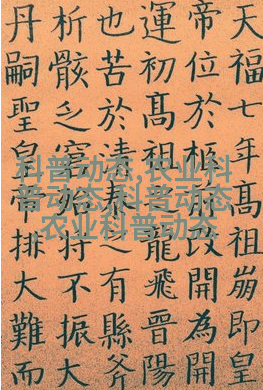 天福七年高祖崩即皇
帝位於柩前改開為開
運初高祖龍飛晉陽
也苦於清泰之有縣斧
析骸之窘始持不振大
丹嗣聖皇帝排大難而
科普动态,农业科
普动态,科普动态
,农业科普动态